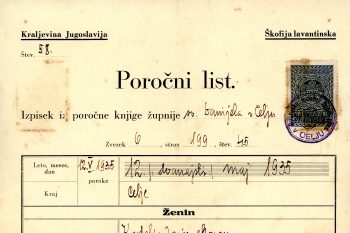 Kraljevina Jugoslavija
Škofija lavantinska
Štev. 58.
Poročni list.
Izpisek iz poročne knjige župnije sv. Danijela v Celju
Zvezek 6, stran 199, štev. 45
Leto, mesec, dan
12. V. 1935
poroke
12. (dvanajsti) maj 1935
Kraj
Celje
Ženin
V CELJU